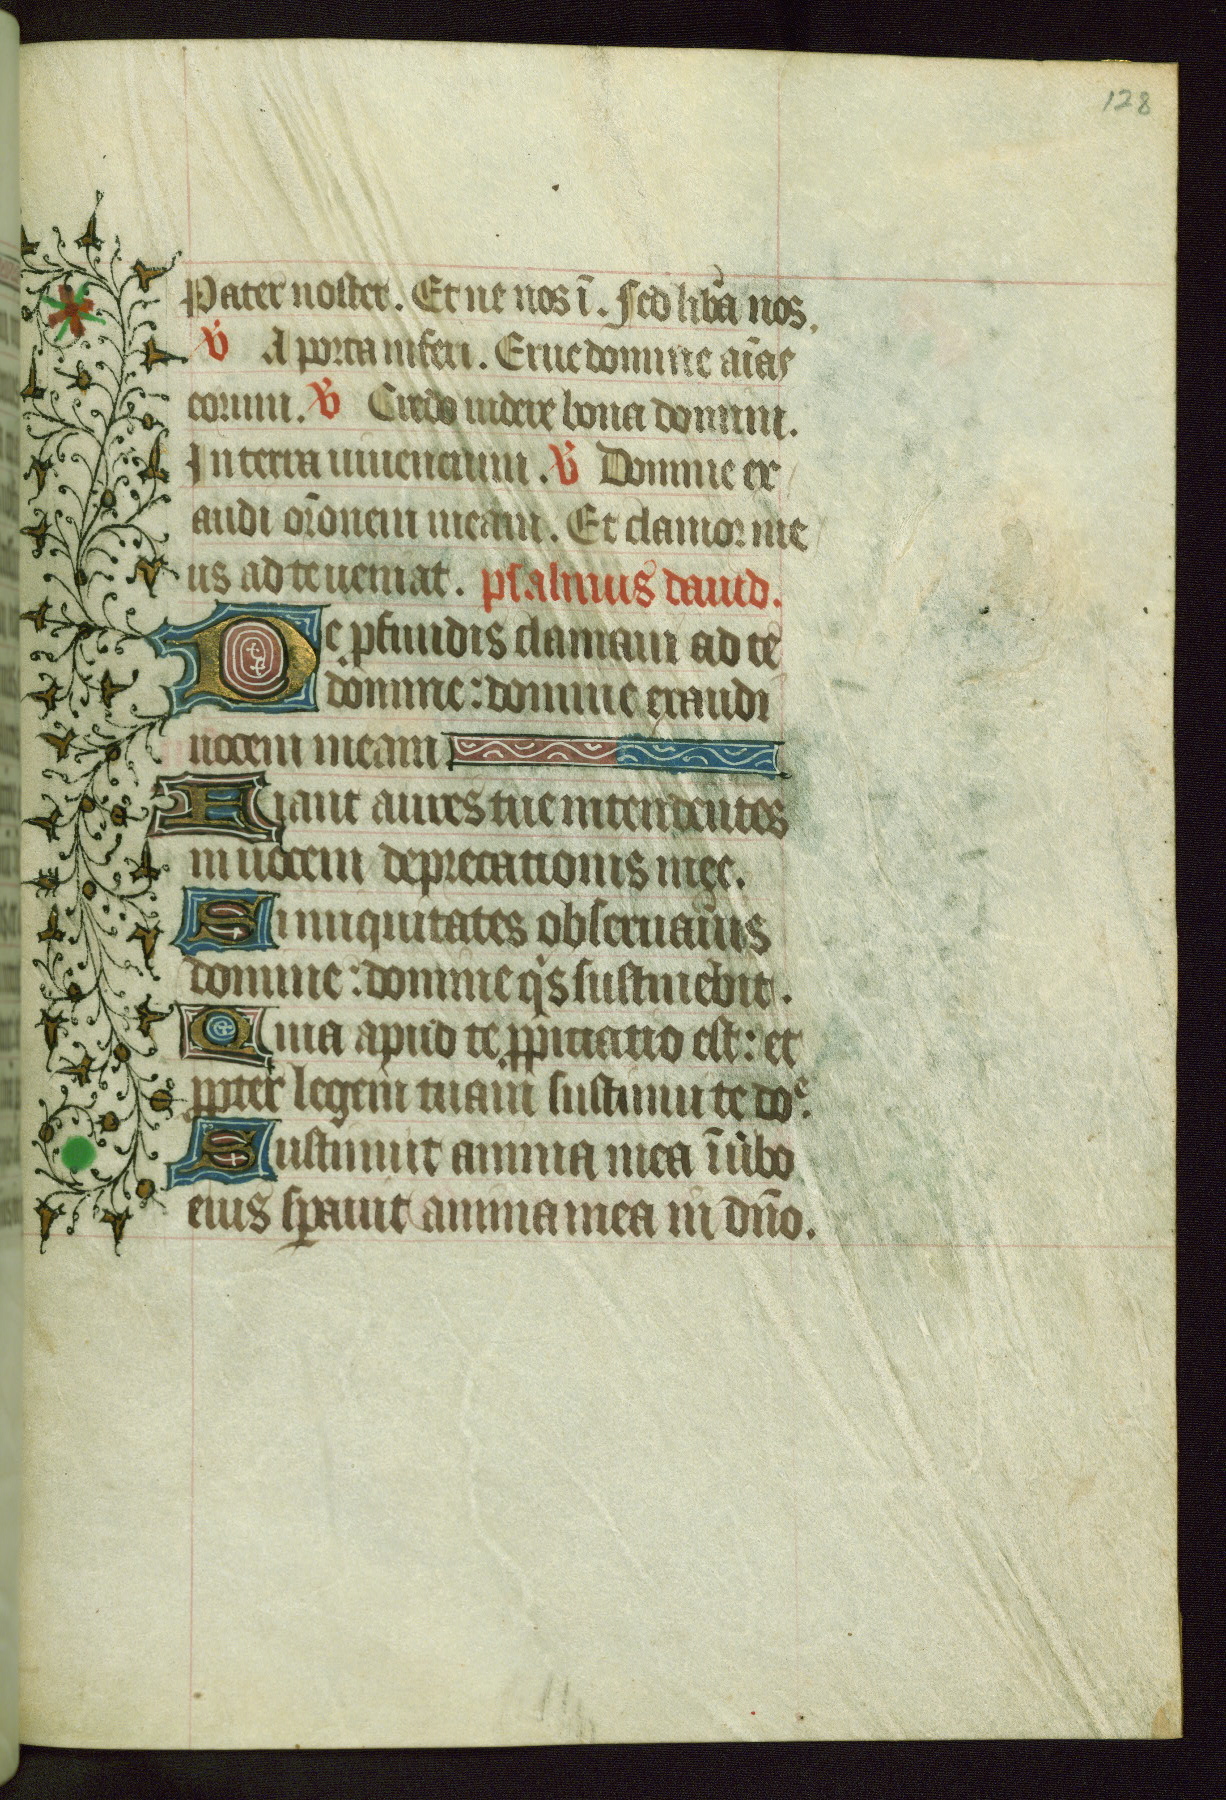 128
Pater noster. Et ne nos ī. Sed lib̄a nos.
℣ A porta inferi. Erue domine aīas
eorum. ℣ Credo uidere bona domini.
In terra uiuencium. ℣ Domine ex
audi or̄onem meam. Et clamor me
us ad te ueniat. psalmus dauid.
De ꝓfundis clamaui ad te
domine: domine exaudi
uocem meam
Fiant aures tue intendentes
in uocem deprecationis meę.
Si iniquitates obseruaūis
domine: domine qⁱs sustinebit.
Quia apud te ꝓpitiatio est: et
ꝓpter legem tuam sustinui te doᵉ.
Sustinuit anima mea ī ūbo
eius sꝑauit anima mea in dn̄o.